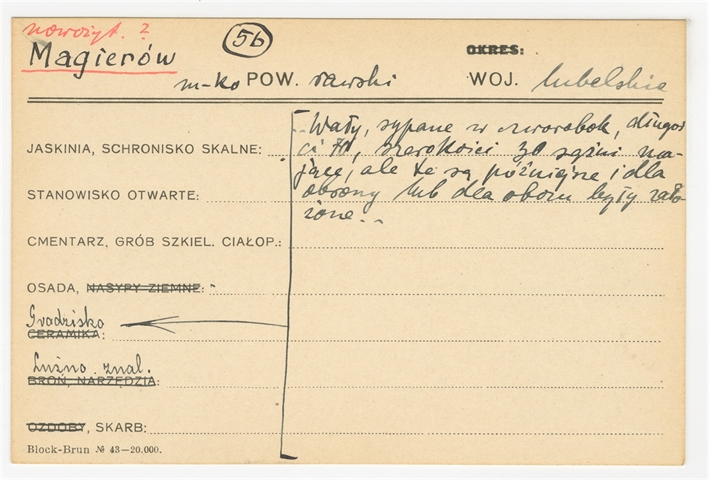 nowożyt. ?
56
OKRES:
Magierów
m-ko POW. rawski WOJ. lubelskie
...Wały, sypane w czworobok, długoś
ci 40, szerokości 30 sążni ma-
JASKINIA, SCHRONISKO SKALNE:
jące, ale te są późniejsze i dla
STANOWISKO OTWARTE:
obrony lub dla obozu były zało-
żone...
CMENTARZ, GRÓB SZKIEL. CIAŁOP.:
OSADA, NASYPY ZIEMNE:
Grodzisko
CERAMIKA:
Luźno znal.
BROŃ, NARZĘDZIA:
OZDOBY, SKARB:
Block-Brun № 43—20.000.